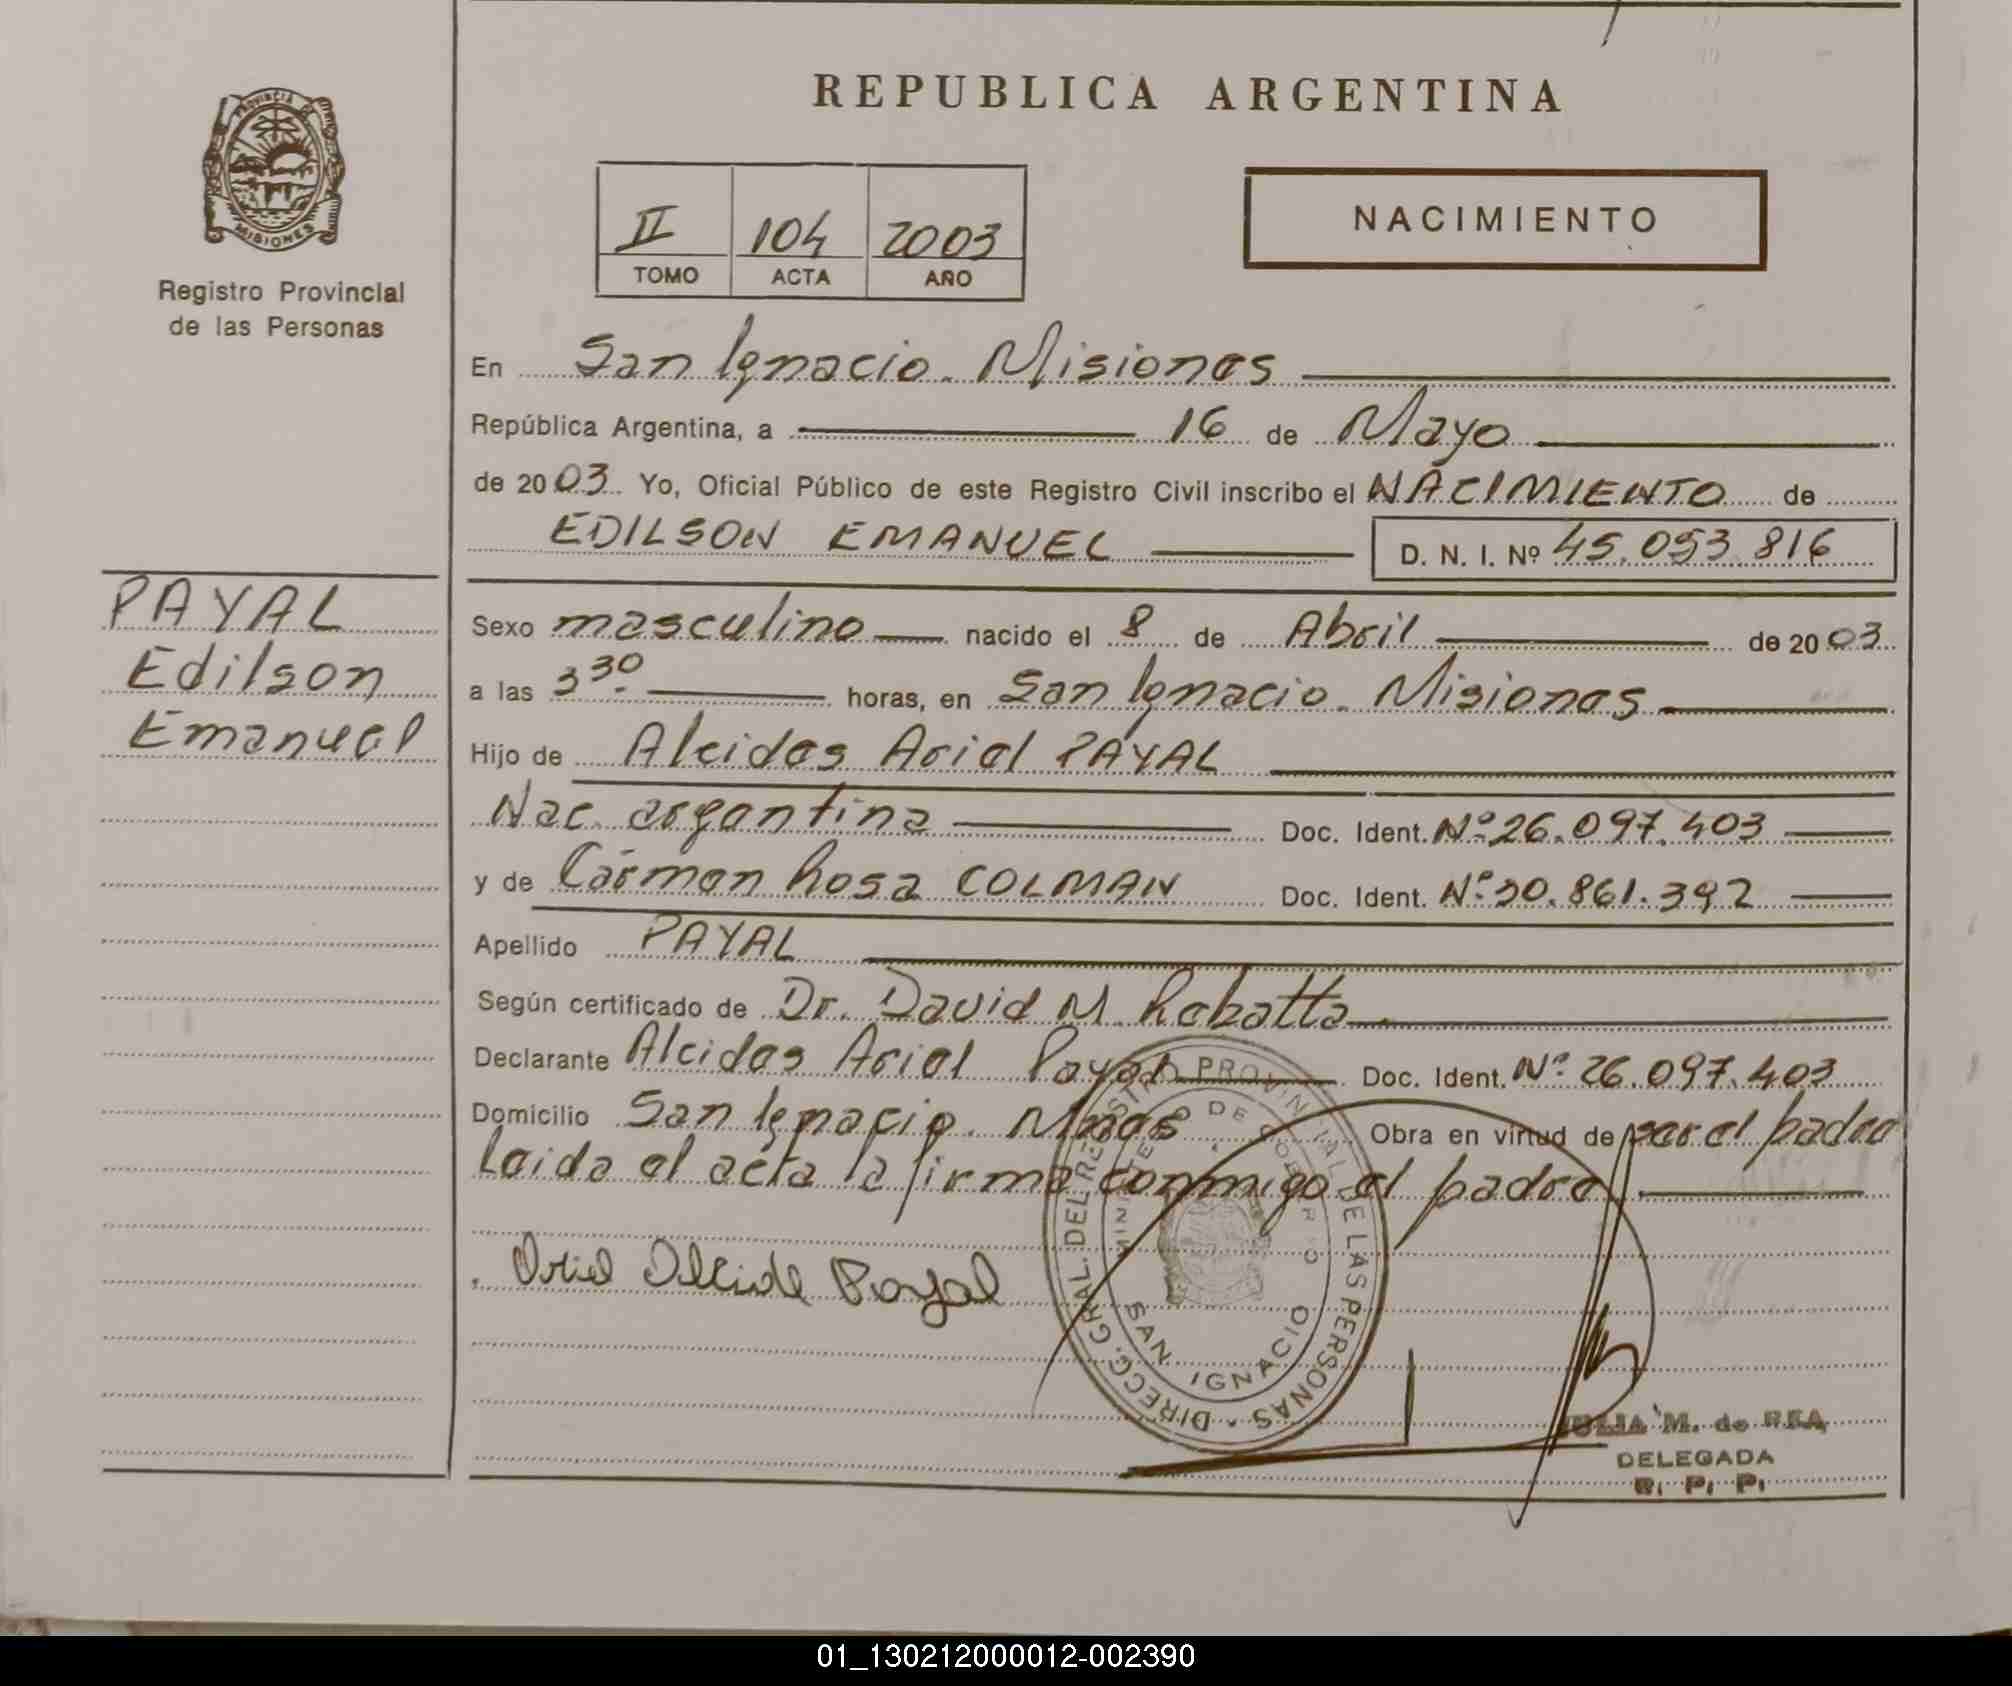 REPUBLICA ARGENTINA
PROVINCIA DE
MISIONES
Registro Provincial
de las Personas
II 104 2003
TOMO ACTA AÑO
NACIMIENTO
En San Ignacio. Misiones
República Argentina, a 16 de Mayo
de 2003 Yo, Oficial Público de este Registro Civil inscribo el NACIMIENTO de
EDILSON EMANUEL D. N. I. Nº 45.053.816
PAYAL
Edilson
Emanuel
Sexo masculino nacido el 8 de Abril de 2003
a las 3 30 horas, en San Ignacio. Misiones
Hijo de Alcides Ariel PAYAL
Nac. argentina Doc. Ident. Nº 26.097.403
y de Carmen Rosa COLMAN Doc. Ident. Nº 30.861.392
Apellido PAYAL
Según certificado de Dr. David M. Rebatta
Declarante Alcides Ariel Payal Doc. Ident. Nº 26.097.403
Domicilio San Ignacio. Mnes Obra en virtud de ser el padre
Leida el acta la firma conmigo el padre
Oriel Alcide Payal
DIRECC. GRAL. DEL REGISTRO PROVINCIAL DE LAS PERSONAS
MINISTERIO DE GOBIERNO
SAN IGNACIO
JULIA M. de REA
DELEGADA
R. P. P.
01_130212000012-002390